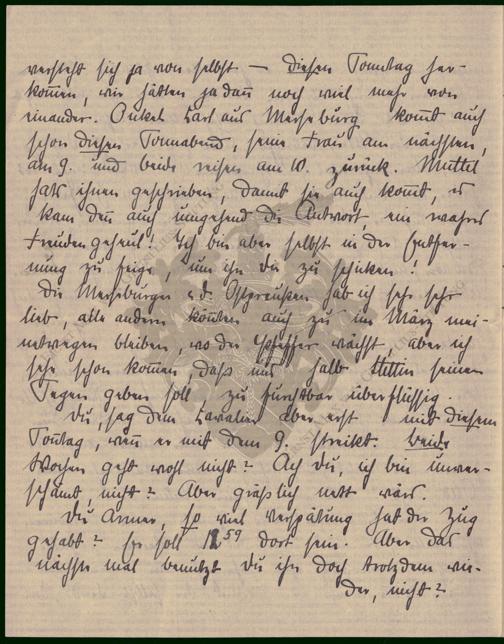 versteht sich ja von selbst — diesen Sonntag her-
kom̄en, wir hätten ja dan̄ noch viel mehr von
einander. Onkel Karl aus Merseburg kom̄t auch
schon diesen Sonnabend, seine Frau am nächsten,
am 9. und beide reisen am 10. zurück. Muttel
hats ihnen geschrieben, damit sie auch kom̄t, es
kam den̄ auch umgehend die Antwort ein wahres
Freudengeheul! Ich bin aber selbst in der Entfer-
nung zu feige, um ihn dir zu schicken!
Die Merseburger u. d. Ostpreußen hab ich sehr sehr
lieb, alle andern kön̄ten auch zu im März mei-
netwegen bleiben, wo der Pfeffer wächst, aber ich
sehe schon kom̄en, daß uns halb Stettin seinen
Segen geben soll, zu furchtbar überflüssig.
Du, sag dem Cavalier aber erst mit diesem
Son̄tag, wen̄ er mit dem 9. streikt. beide
Wochen geht wohl nicht? Ach du, ich bin unver-
schämt, nicht? Aber gräßlich nett wärs.
Du Armer, so viel Verspätung hat der Zug
gehabt? Er soll 12⁵⁹ dort sein. Aber das
nächste mal benutzt du ihn doch trotzdem wie-
der, nicht?